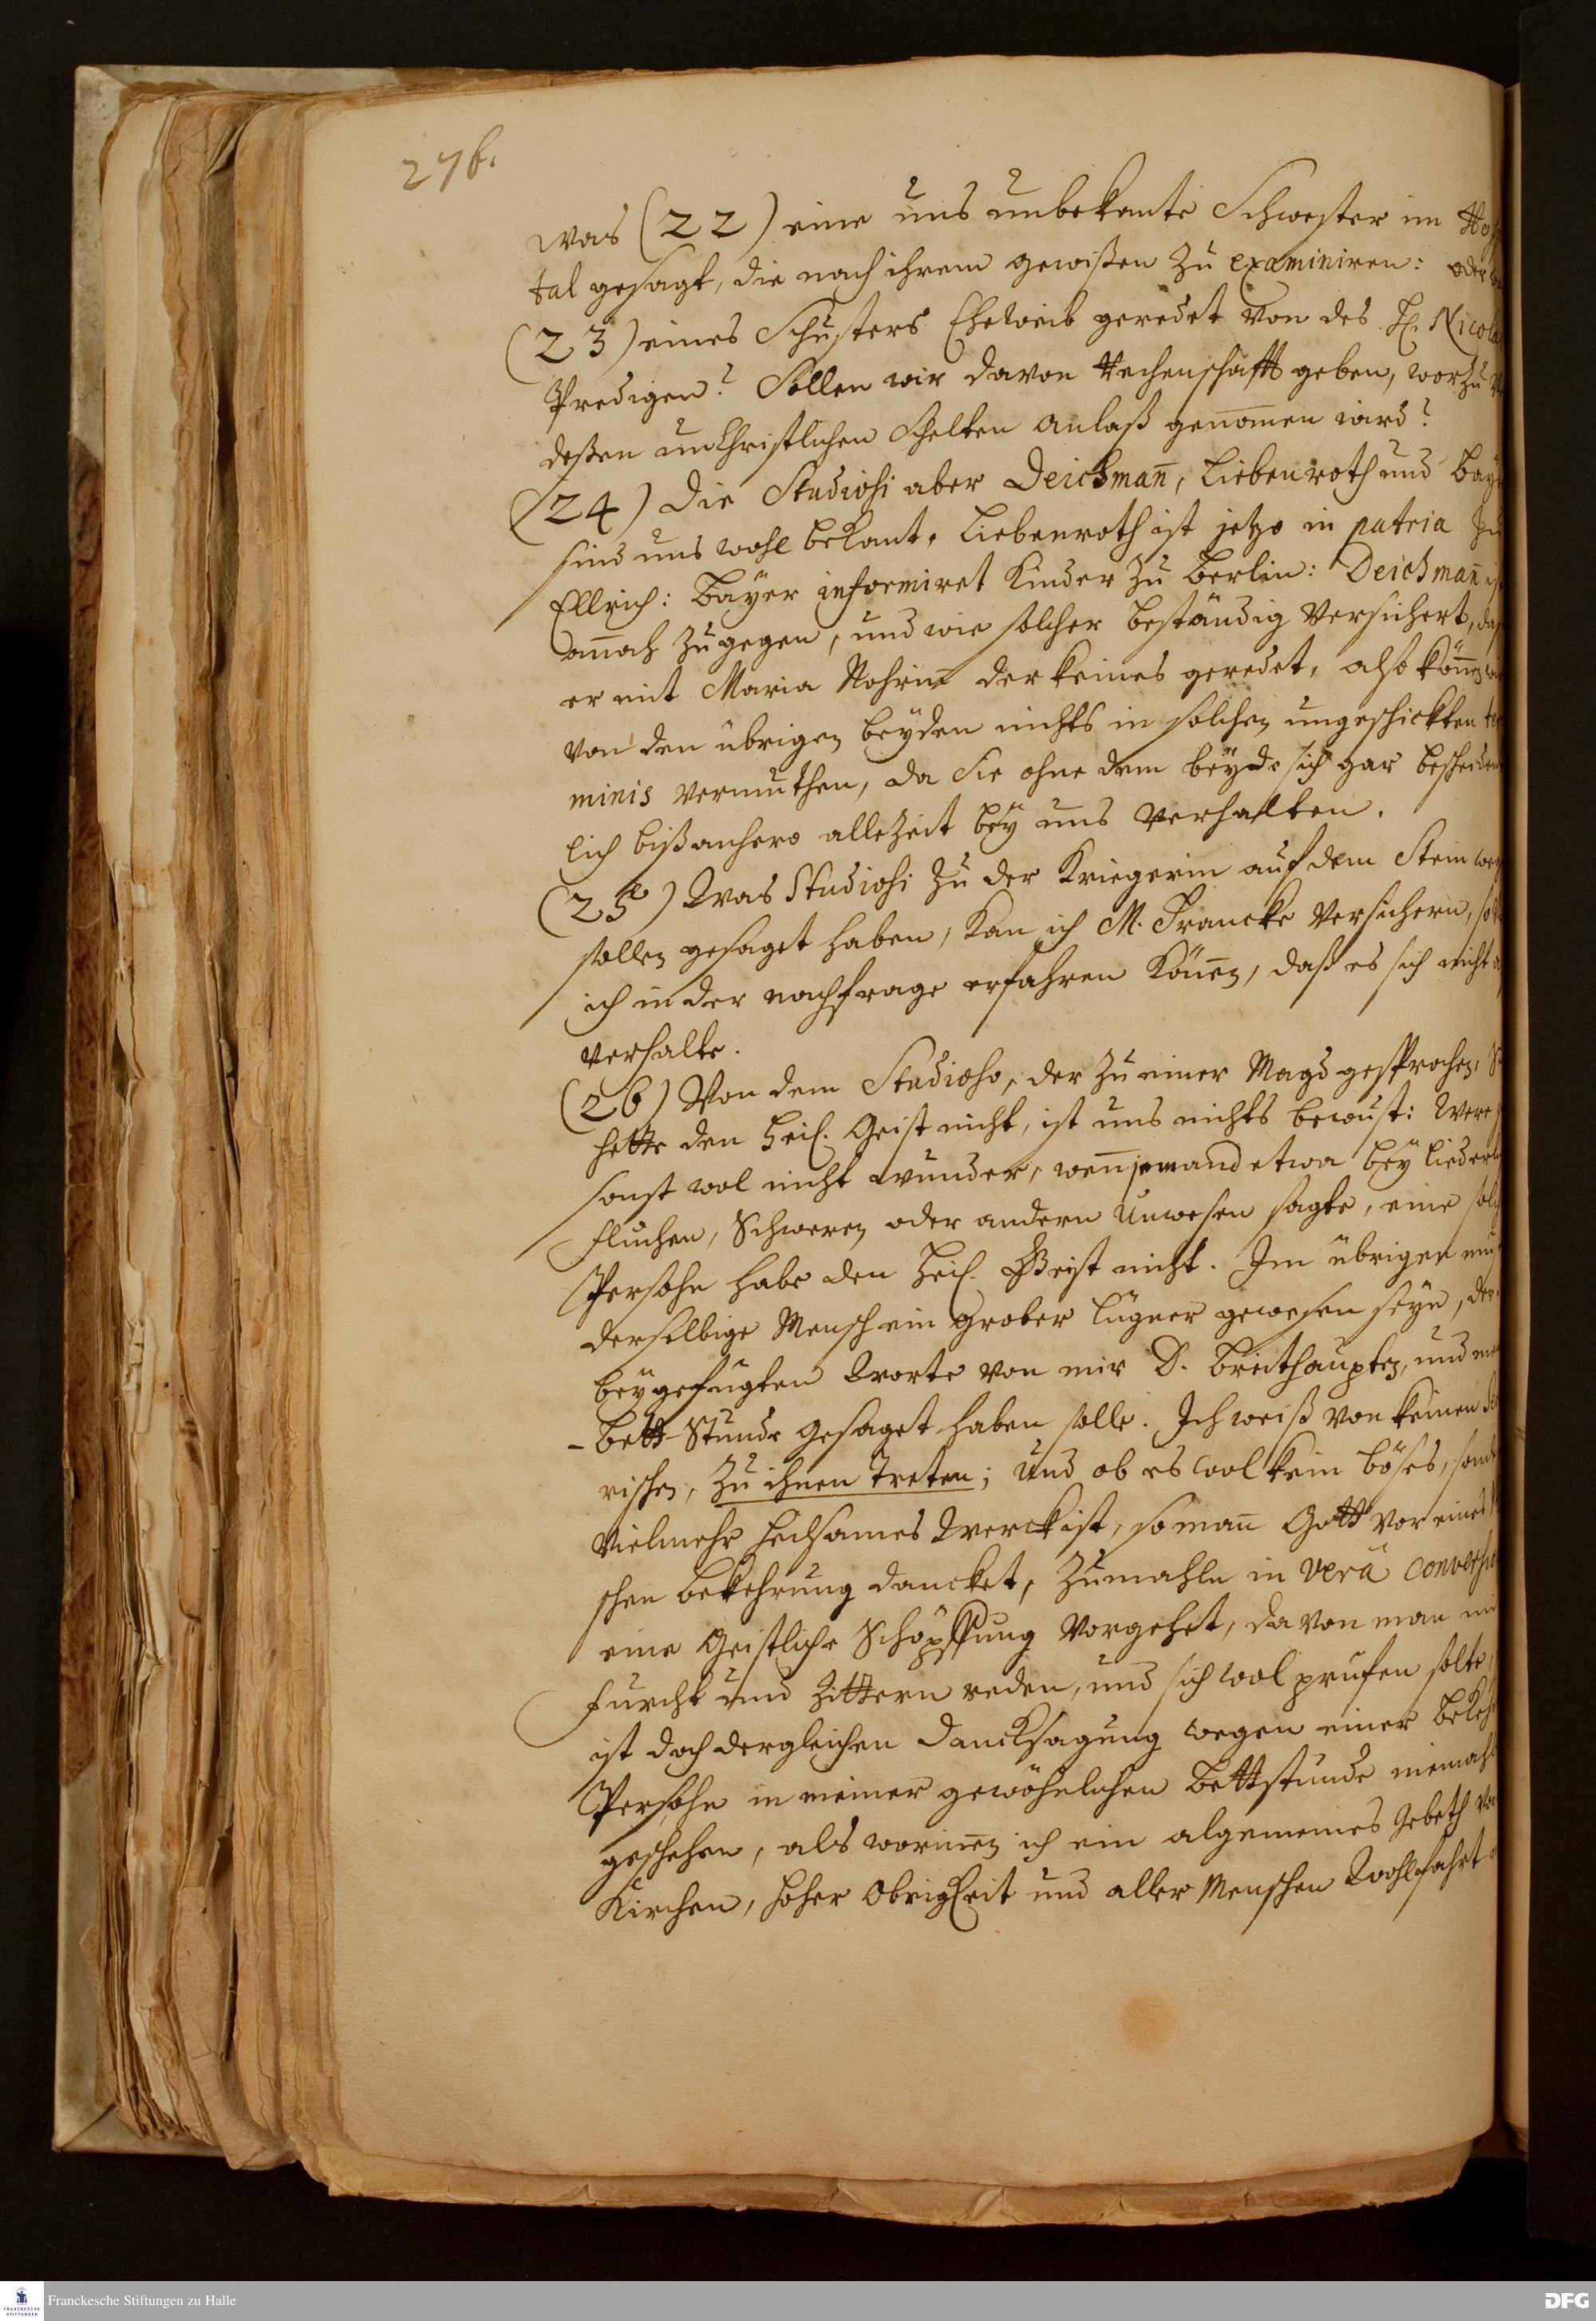 276.
was (22) eine uns unbekante Schwester im Hos
tal gesagt, die nach ihrem gewißen zu examiniren: oder
(23) eines Schusters Eheweib geredet von des H. Nicola
Predigen? Sollen wir davon Rechenschafft geben, worzu
deßen unChristlichen Schelten anlaß genom̅en wird?
(24) Die Studiosi aber Deichman̅, Liebenroth und Baye
sind uns wohl bekant, Liebenroth ist jetzo in patria zu
Ellrich: Bäyer informiret Kinder zu Berlin: Deichman̅ ist
an̅och zugegen, und wie solcher beständig versichert, daß
er mit Maria Rohrin̅ der keines geredet, also kön̅en wir
von den übrigen beyden nichts in solchen ungeschickten ter
minis vermuthen, da Sie ohne dem beyde sich gar bescheident
lich bißanhero allezeit bey uns verhalten.
(25) Was Studiosi zu der Kriegerin auf dem Steinweg
sollen gesaget haben, kan ich M. Francke versichern,
ich in der nachfrage erfahren kön̅en, daß es sich nicht
verhalte.
(26) Von dem Studioso, der zu einer Magd gesprochen,
hette den Heil. Geist nicht, ist uns nichts bewust: Were
sonst wol nicht wunder, wen̅ jemand etwa bey liederl
fluchen, Schweren oder andern Unwesen sagte, eine solch
Persohn habe den Heil. Geist nicht. Im übrigen muß
derselbige Mensch ein grober lügner gewesen seyn, der
beygefügten Worte von mir D. Breithaupten, und mei
-Bett-Stunde gesaget haben solle. Ich weiß von keinen
rischen, zu ihnen Treten; Und ob es wol kein böses, sonde
vielmehr heilsames Werck ist, so man̅ Gott vor eines
schen bekehrung dancket, zumahln in verâ conversio
eine Geistliche Schöpffung vorgehet, davon man mi
furcht und Zittern reden, und sich wol prüfen solte,
ist doch dergleichen Dancksagung wegen einer bekeh
Persohn in meiner gewöhnlichen Bettstunde niemahls
geschehen, als worin̅en ich ein algemeines Gebeth vor
Kirchen, hoher Obrigkeit und aller Menschen Wohlfahrt
Franckesche Stiftungen zu Halle
FRANCKESCHE STIFTUNGEN
DFG